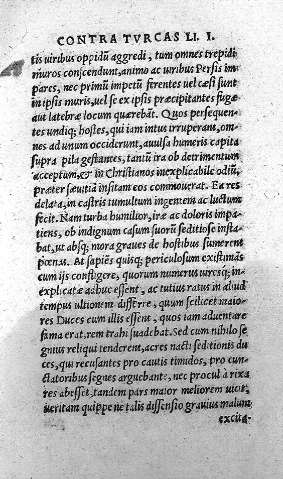 CONTRA TVRCAS LI. I.
tis uiribus oppidū aggredi, tum omnes trepidi
muros conscendunt, animo ac uiribus Persis im-
pares, nec primū impetū ferentes uel cæsi sunt
in ipsis muris, uel se ex ipsis præcipitantes fugæ
aut latebræ locum quærebāt. Quos persequen-
tes undiq; hostes, qui iam intus irruperant, om-
nes ad unum occiderunt, auulsa humeris capita
supra pila gestantes, tantū ira ob detrimentum
acceptum, & in Christianos inexplicabile odiū,
præter sæuitiā insitam eos commouerat. Ea res
delata, in castris tumultum ingentem ac luctum
fecit. Nam turba humilior, iræ ac doloris impa-
tiens, ob indignum casum suorū seditiose insta-
bat, ut absq; mora graues de hostibus sumerent
pœnas. At sapiēs quisq; periculosum existimās
cum ijs confligere, quorum numerus uiresq; in-
explicatæ adhuc essent, ac tutius ratus in aliud
tempus ultionem differre, quum scilicet maio-
res Duces cum illis essent, quos iam aduentare
fama erat, rem trahi suadebat. Sed cum nihilo se
gnius reliqui tenderent, acres nacti seditionis du
ces, qui recusantes pro cautis timidos, pro cun-
ctatoribus segnes arguebant, nec procul à rixa
res abesset, tandem pars maior meliorem uicit,
ueritam quippe ne talis dissensio grauius malum
excita-